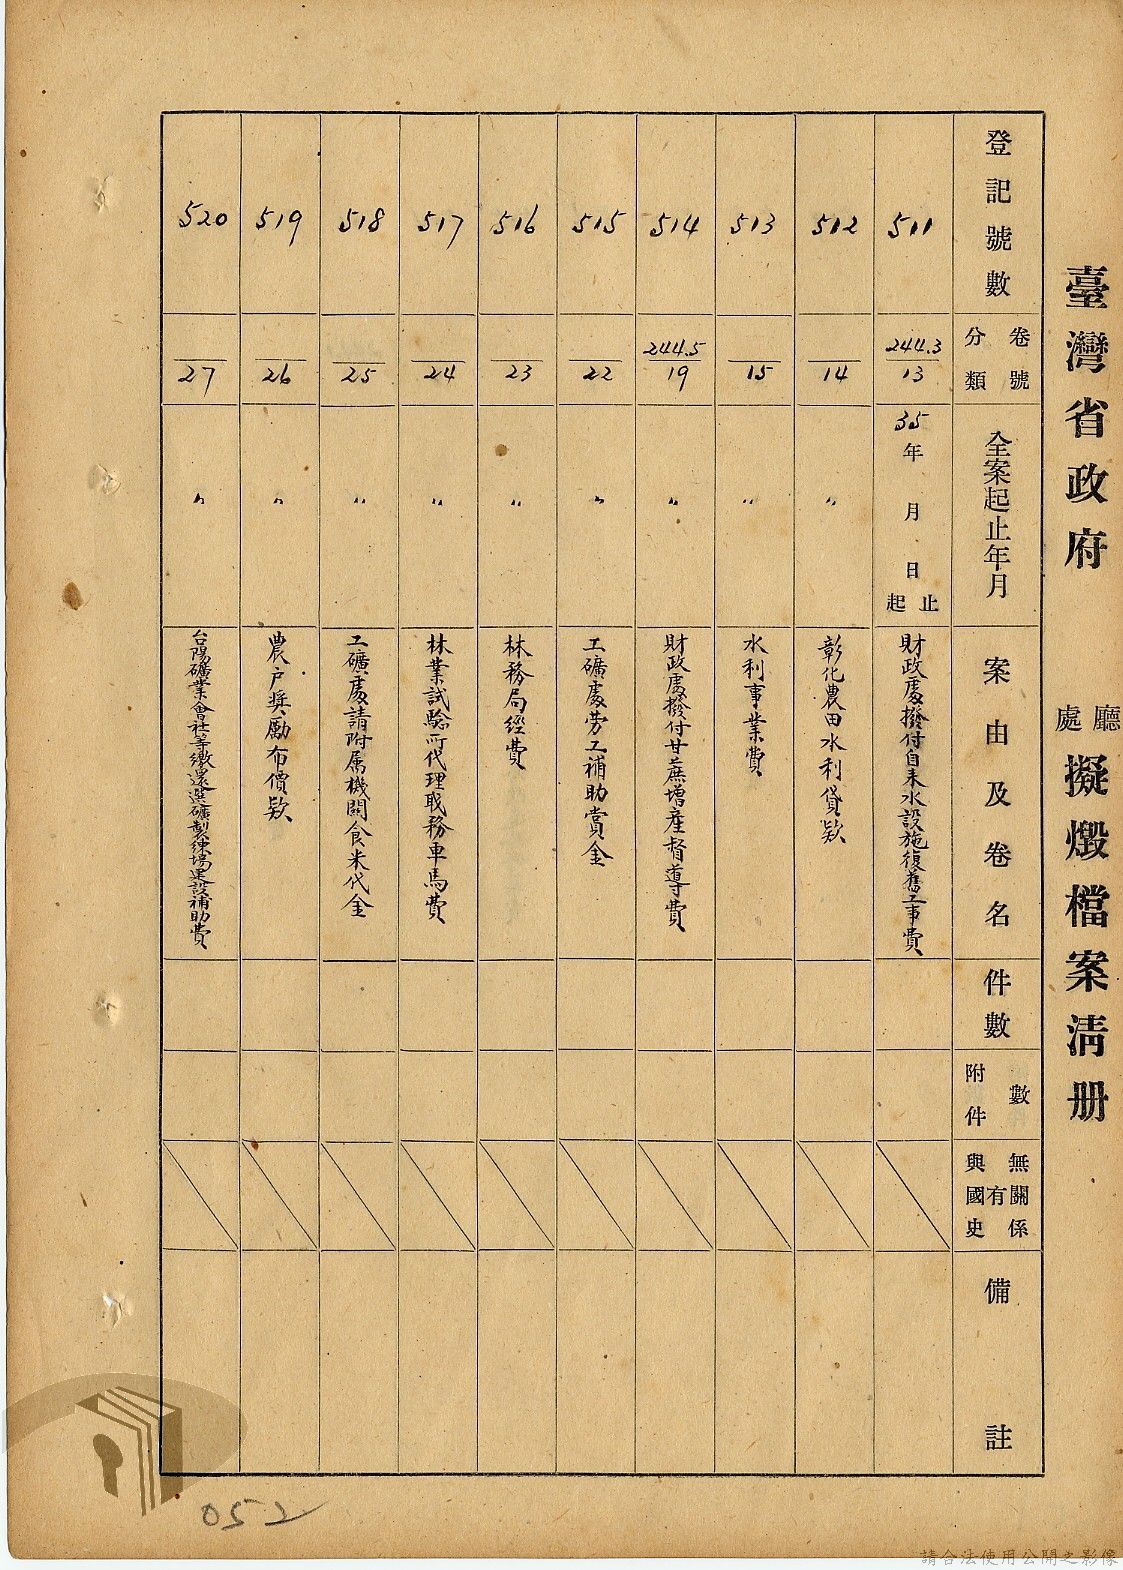 臺灣省政府 廳處 擬燬檔案清册
登記號數
卷號
分類
全案起止年月
案由及卷名
件數
附件數
與國史有無關係
備註
511
244.3
13
35年 月 日起止
財政處撥付自来水設施復舊工事費
512
14
〃
彰化農田水利貸欵
513
15
〃
水利事業費
514
244.5
19
〃
財政處撥付甘蔗增產督導費
515
22
〃
工礦處劳工補助賞金
516
23
〃
林務局經費
517
24
〃
林業試驗所代理職務車馬費
518
25
〃
工礦處請附属機關食米代金
519
26
〃
農戶奬励布價欵
520
27
〃
台陽礦業會社等繳還選礦製練場建設補助費
052
請合法使用公開之影像